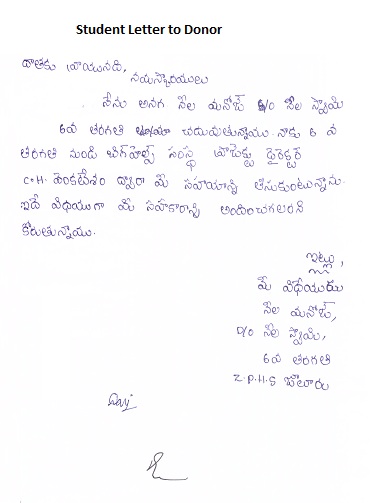 Student Letter to Donor
దాతకు వ్రాయునది,
నమస్కారములు
నేను అనగ నేల మనోజ్ S/O నేల స్వామి
6వ తరగతి చదువుతున్నాను. నాకు 6 వ
తరగతి నుండి బిగ్‌హెల్ప్ సంస్థ ప్రాజెక్టు డైరెక్టర్
C.H. వెంకటేశం ద్వారా మీ సహాయాన్ని తీసుకుంటున్నాను.
ఇదే విధముగా మీ సహకారాన్ని అందించగలరని
కోరుతున్నాను.
ఇట్లు,
మీ విధేయుడు
నేల మనోజ్,
S/O నేల స్వామి,
6వ తరగతి
Z.P.H.S